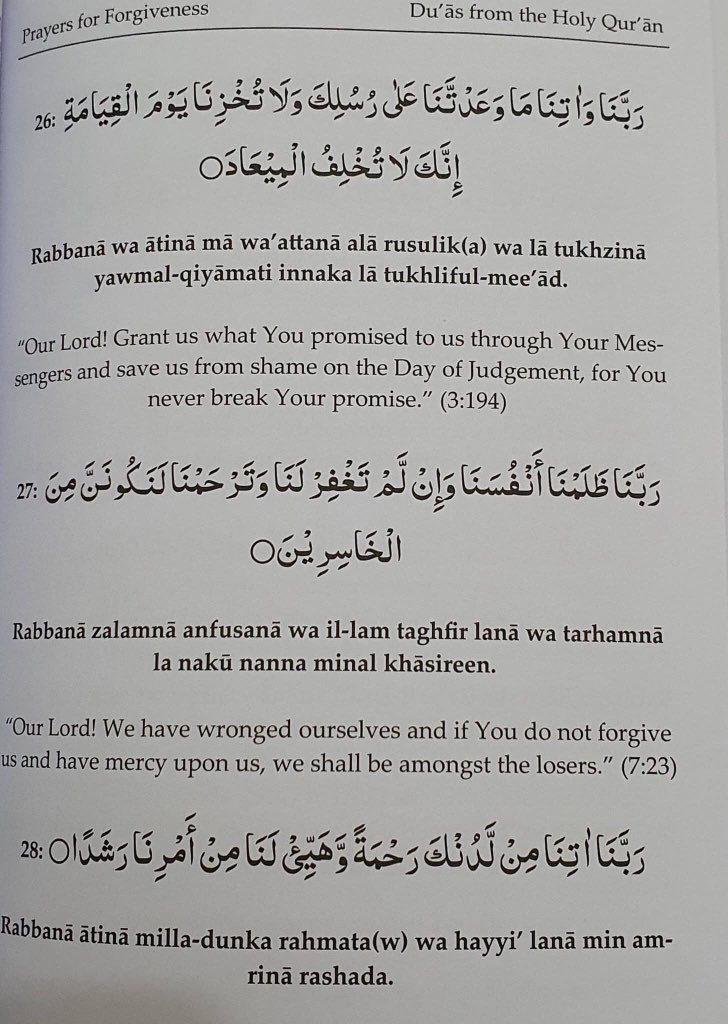 Prayers for Forgiveness
Du'ās from the Holy Qur'ān
26: رَبَّنَا وَاٰتِنَا مَا وَعَدْتَّنَا عَلٰى رُسُلِكَ وَلَا تُخْزِنَا يَوْمَ الْقِيَامَةِ
إِنَّكَ لَا تُخْلِفُ الْمِيْعَادَ○
Rabbanā wa ātinā mā wa'attanā alā rusulik(a) wa lā tukhzinā
yawmal-qiyāmati innaka lā tukhliful-mee'ād.
“Our Lord! Grant us what You promised to us through Your Mes-
sengers and save us from shame on the Day of Judgement, for You
never break Your promise.” (3:194)
27: رَبَّنَا ظَلَمْنَا أَنْفُسَنَا وَإِنْ لَّمْ تَغْفِرْ لَنَا وَتَرْحَمْنَا لَنَكُونَنَّ مِنَ
الْخَاسِرِيْنَ○
Rabbanā zalamnā anfusanā wa il-lam taghfir lanā wa tarhamnā
la nakū nanna minal khāsireen.
“Our Lord! We have wronged ourselves and if You do not forgive
us and have mercy upon us, we shall be amongst the losers.” (7:23)
28: رَبَّنَا اٰتِنَا مِنْ لَّدُنْكَ رَحْمَةً وَّهَيِّئْ لَنَا مِنْ أَمْرِنَا رَشَدًا○
Rabbanā ātinā milla-dunka rahmata(w) wa hayyi' lanā min am-
rinā rashada.